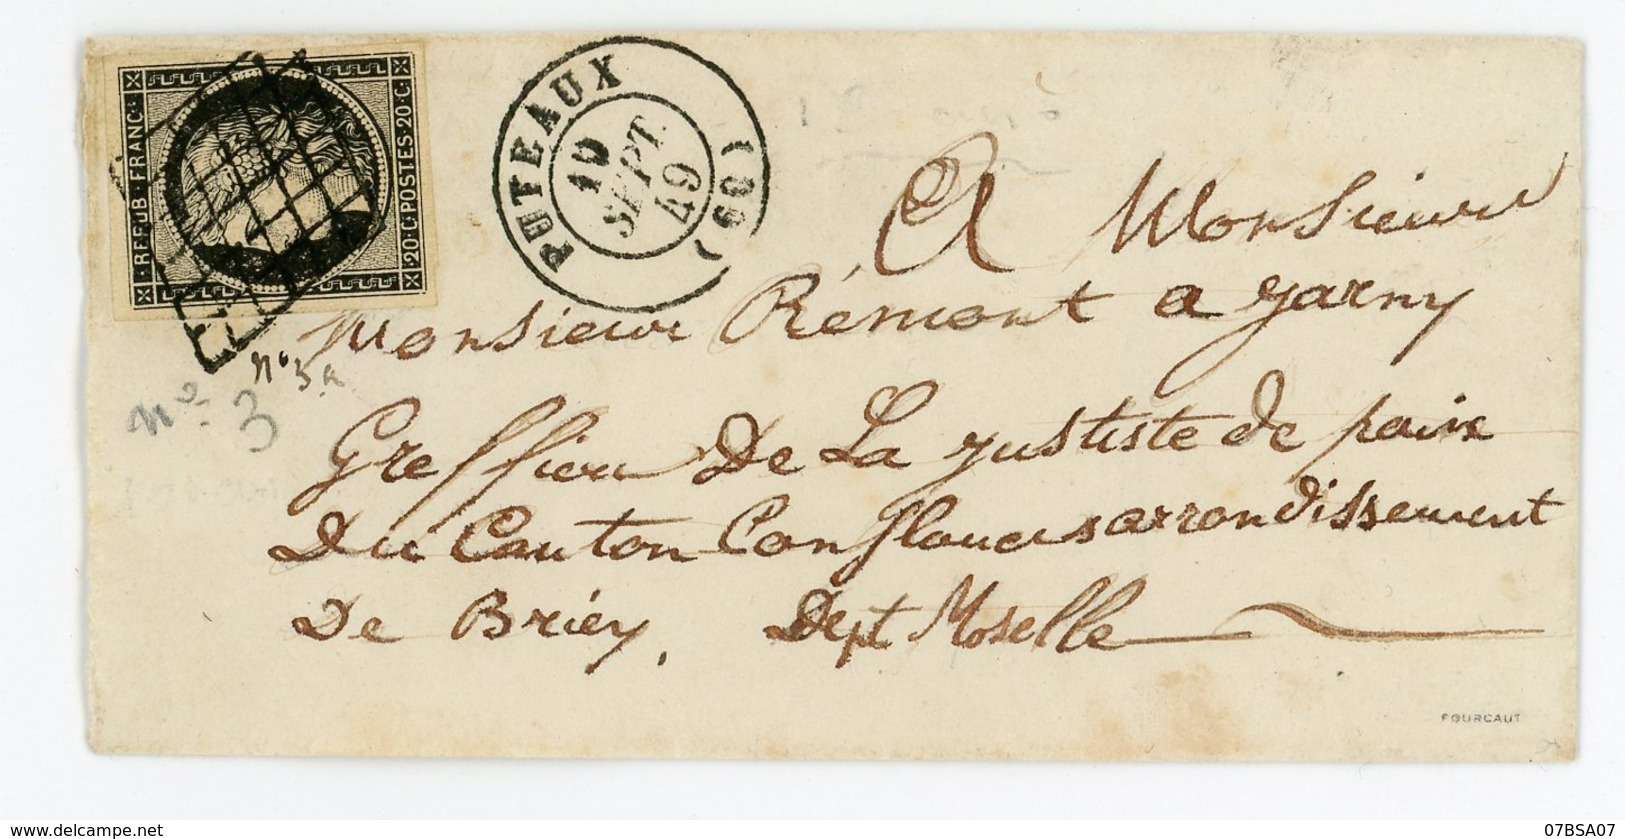 REPUB·FRANC·
20·C·POSTES·20·C·
PUTEAUX (60)
10
SEPT.
49
A Monsieur
Monsieur Rémont a jarny
Greffier De La justiste de paix
Du Canton Conflouersarrondissement
De Briey, Dept Moselle
n° 3a
n° 3
FOURCAUT
07BSA07
delcampe.net